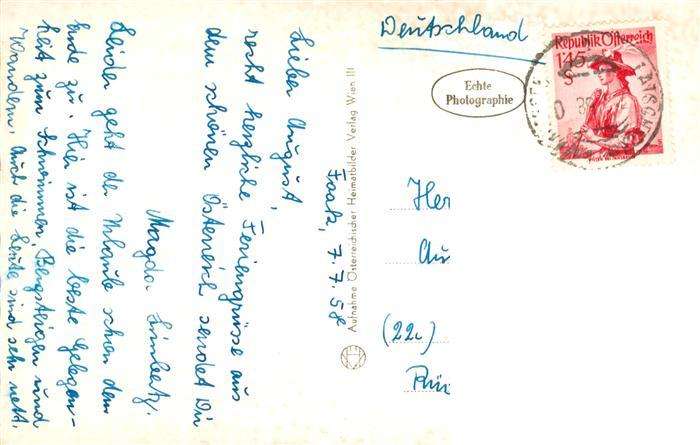 Faak, 7.7.58
Lieber August,
recht herzliche Feriengrüsse aus
dem schönen Österreich sendet Dir
Magda
Leider geht der Urlaub schon dem
Ende zu. Hier ist die beste Gelegen-
heit zum Schwimmen, Bergsteigen und
Wandern. Auch die Leute sind sehr nett.
Aufnahme Österreichischer Heimatbilder Verlag Wien III
Deutschland
Echte
Photographie
Republik Österreich
1.45
S
Her
Au
(22c)